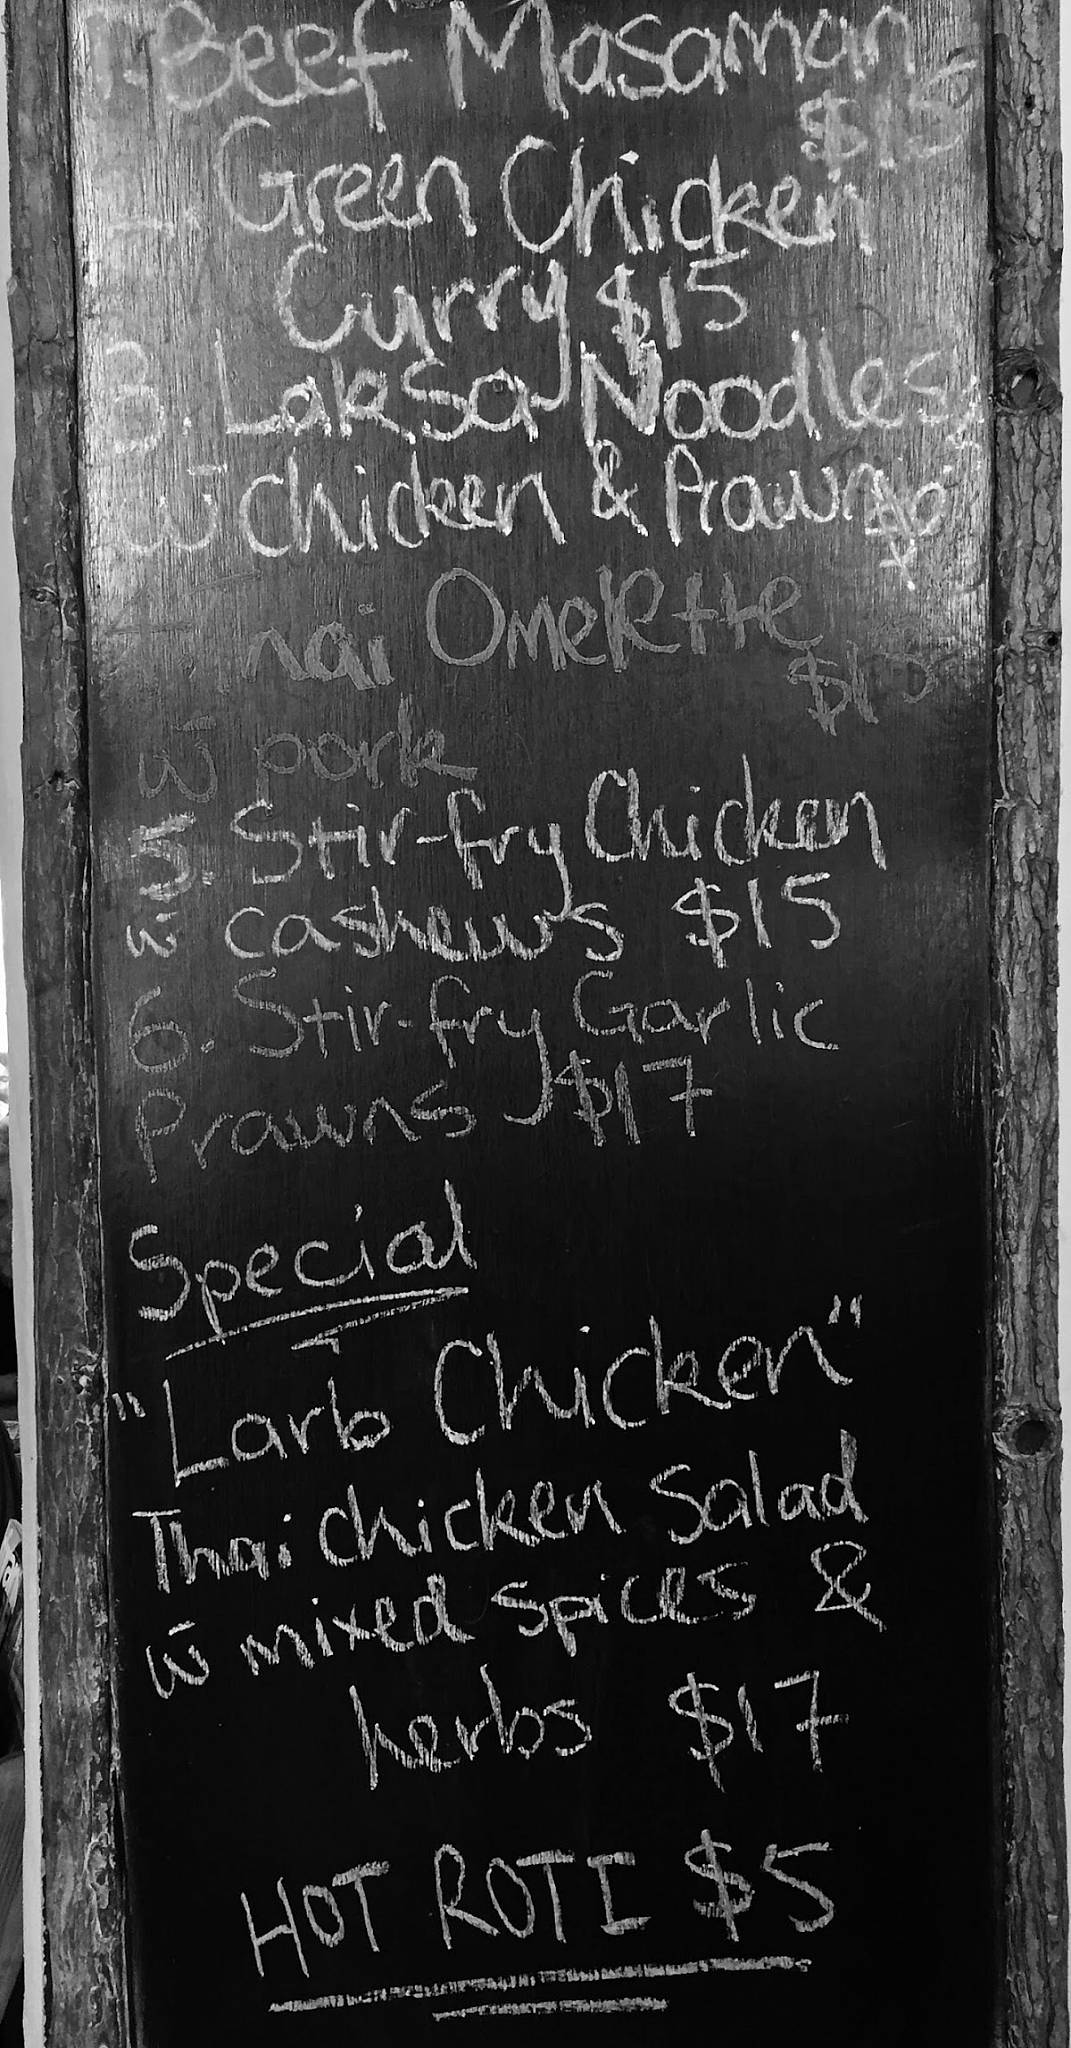 1. Beef Masaman
$15
Green Chicken
Curry $15
3. Laksa Noodles
w chicken & Prawns
4. Thai Omelette
w pork
5. Stir-fry Chicken
w cashews $15
6. Stir-fry Garlic
Prawns $17
Special
"Larb Chicken"
Thai chicken Salad
w mixed spices &
herbs $17
HOT ROTI $5